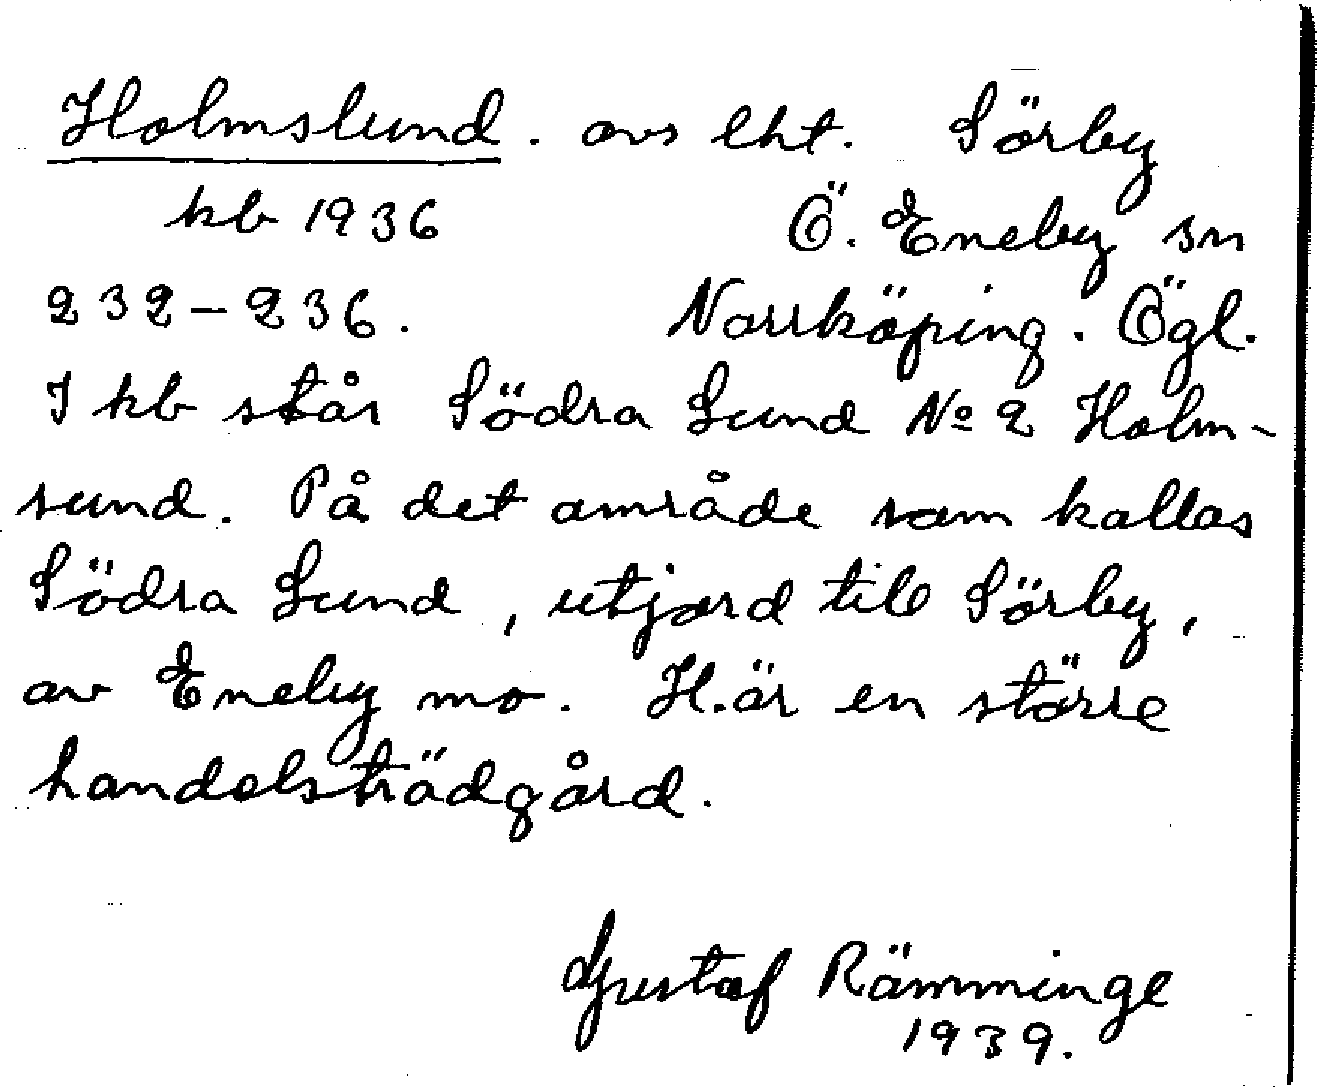 Holmslund. avs lht. Sörby
kb 1936 Ö. Eneby sn
232-236. Norrköping. Ögl.
I kb står Södra Lund No 2 Holm-
sund. På det område som kallas
Södra Lund, utjord till Sörby,
av Eneby mo. H. är en större
handelsträdgård.
Gustaf Rämminge
1939.